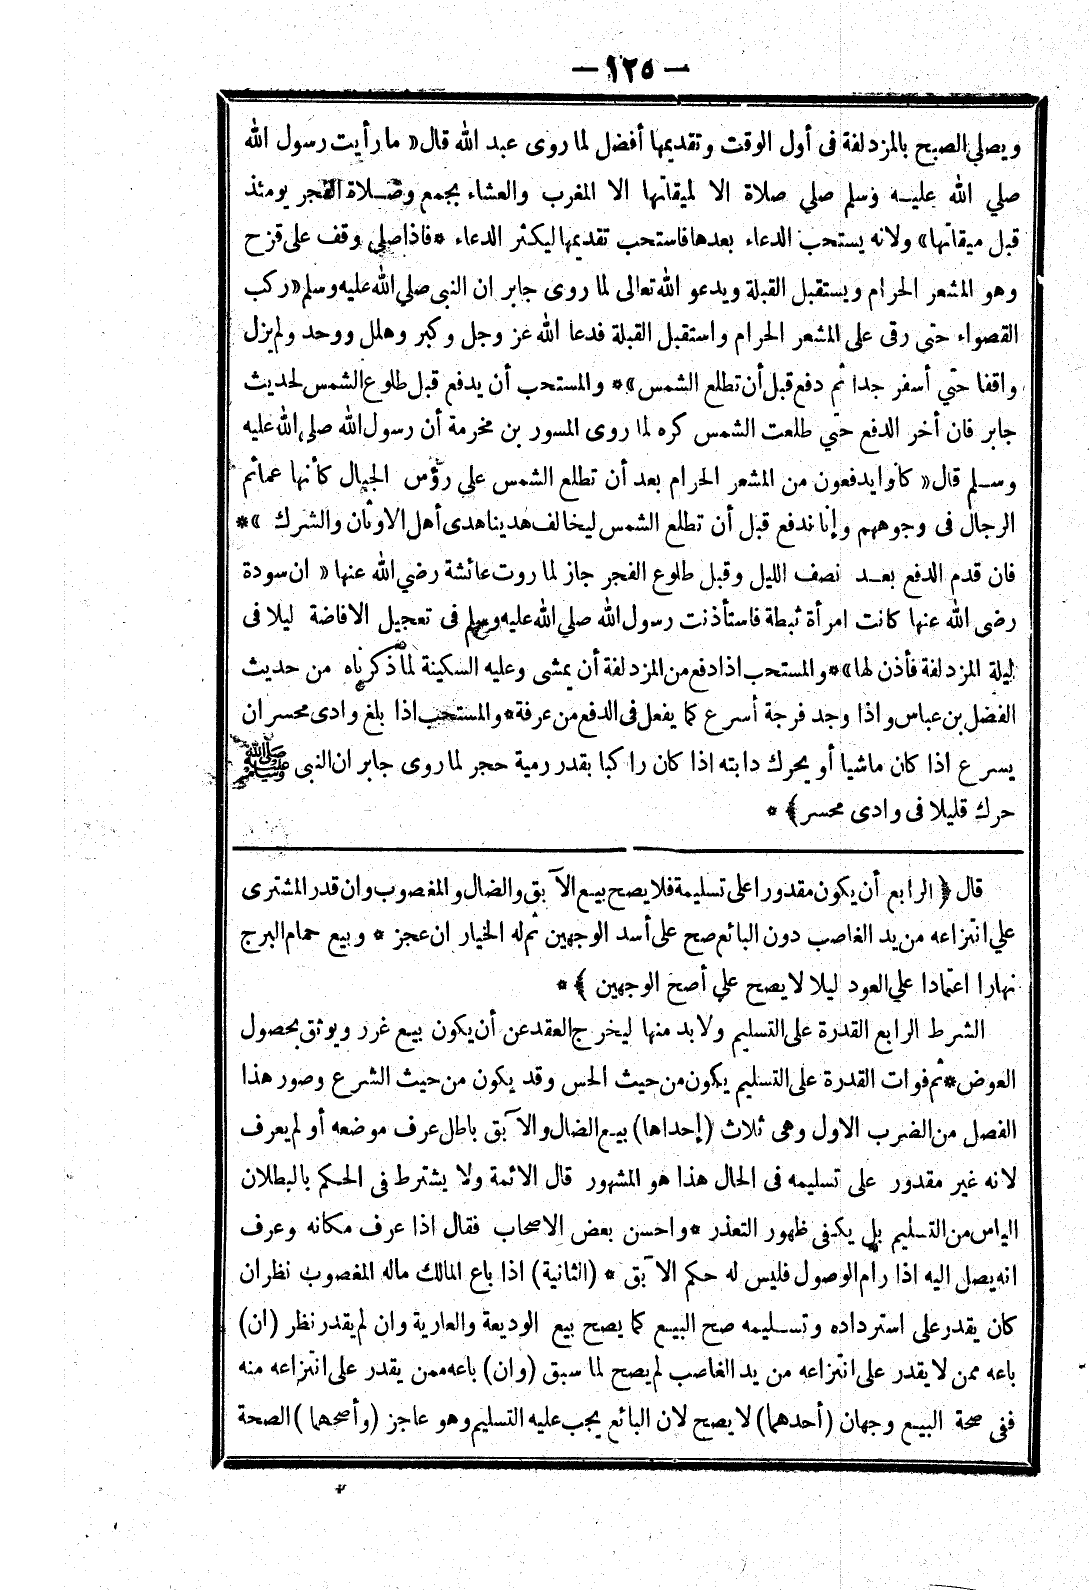 — ١٢٥ —
ويصلي الصبح بالمزدلفة فى أول الوقت وتقديمها أفضل لما روى عبد الله قال « ما رأيت رسول الله
صلي الله عليه وسلم صلي صلاة الا لميقاتها الا المغرب والعشاء بجمع وصلاة الفجر يومئذ
قبل ميقاتها » ولانه يستحب الدعاء بعدها فاستحب تقديمها ليكثر الدعاء * فاذا صلي وقف على قزح
وهو المشعر الحرام ويستقبل القبلة ويدعو الله تعالى لما روى جابر ان النبى صلي الله عليه وسلم « ركب
القصواء حتي رقى علي المشعر الحرام واستقبل القبلة فدعا الله عز وجل وكبر وهلل ووحد ولم يزل
واقفا حتي أسفر جدا ثم دفع قبل أن تطلع الشمس » * والمستحب أن يدفع قبل طلوع الشمس لحديث
جابر فان أخر الدفع حتي طلعت الشمس كره لما روى المسور بن مخرمة أن رسول الله صلي الله عليه
وسلم قال « كانوا يدفعون من المشعر الحرام بعد أن تطلع الشمس علي رؤس الجبال كأنها عمائم
الرجال فى وجوههم وإنا ندفع قبل أن تطلع الشمس ليخالف هدينا هدى أهل الاوثان والشرك » *
فان قدم الدفع بعد نصف الليل وقبل طلوع الفجر جاز لما روت عائشة رضي الله عنها « ان سودة
رضى الله عنها كانت امرأة ثبطة فاستأذنت رسول الله صلي الله عليه وسلم فى تعجيل الافاضة ليلا فى
ليلة المزدلفة فأذن لها » * والمستحب اذا دفع من المزدلفة أن يمشى وعليه السكينة لما ذكرناه من حديث
الفضل بن عباس واذا وجد فرجة أسرع كما يفعل فى الدفع من عرفة * والمستحب اذا بلغ وادى محسر ان
يسرع اذا كان ماشيا أو يحرك دابته اذا كان راكبا بقدر رمية حجر لما روى جابر ان النبى ﷺ
حرك قليلا فى وادى محسر ﴾ *
قال ﴿ الرابع أن يكون مقدورا على تسليمة فلا يصح بيع الآبق والضال والمغصوب وان قدر المشترى
علي انتزاعه من يد الغاصب دون البائع صح على أسد الوجهين ثم له الخيار ان عجز * وبيع حمام البرج
نهارا اعتمادا علي العود ليلا لا يصح علي أصح الوجهين ﴾ *
الشرط الرابع القدرة على التسليم ولا بد منها ليخرج العقد عن أن يكون بيع غرر ويوثق بحصول
العوض * ثم فوات القدرة على التسليم يكون من حيث الحس وقد يكون من حيث الشرع وصور هذا
الفصل من الضرب الاول وهى ثلاث (إحداها) بيع الضال والآبق باطل عرف موضعه أو لم يعرف
لانه غير مقدور على تسليمه فى الحال هذا هو المشهور قال الائمة ولا يشترط فى الحكم بالبطلان
الياس من التسليم بل يكفى ظهور التعذر * واحسن بعض الاصحاب فقال اذا عرف مكانه وعرف
انه يصل اليه اذا رام الوصول فليس له حكم الآبق * (الثانية) اذا باع المالك ماله المغصوب نظر ان
كان يقدر على استرداده وتسليمه صح البيع كما يصح بيع الوديعة والعارية وان لم يقدر نظر (ان)
باعه ممن لا يقدر على انتزاعه من يد الغاصب لم يصح لما سبق (وان) باعه ممن يقدر على انتزاعه منه
ففى صحة البيع وجهان (أحدهما) لا يصح لان البائع يجب عليه التسليم وهو عاجز (وأصحهما) الصحة